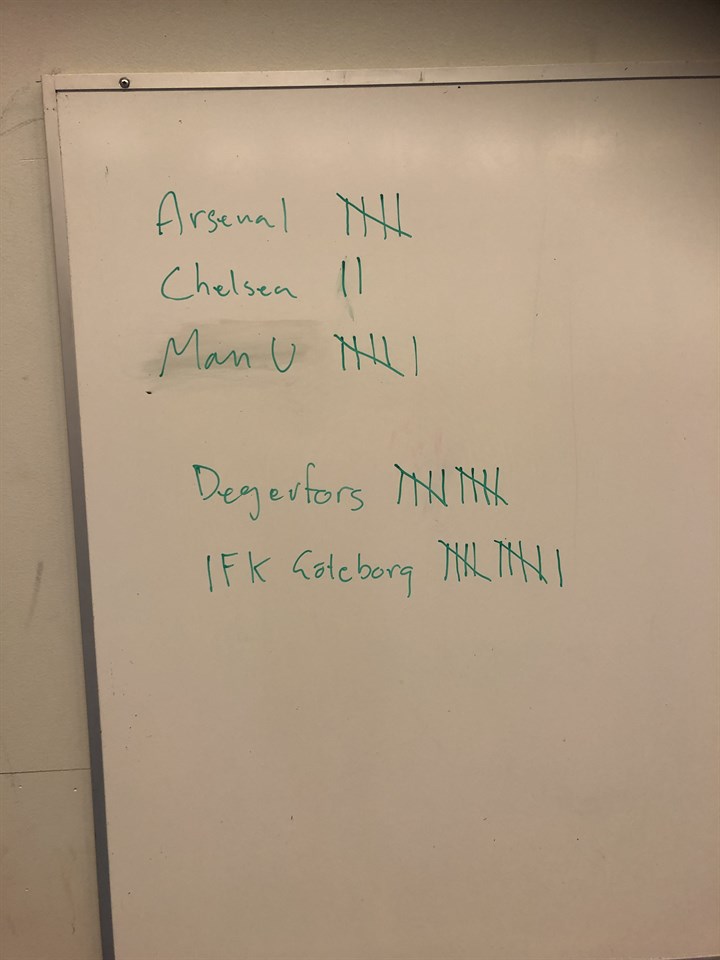 Arsenal 卌
Chelsea ||
Man U 卌 |
Degerfors 卌 卌
IFK Göteborg 卌 卌 |